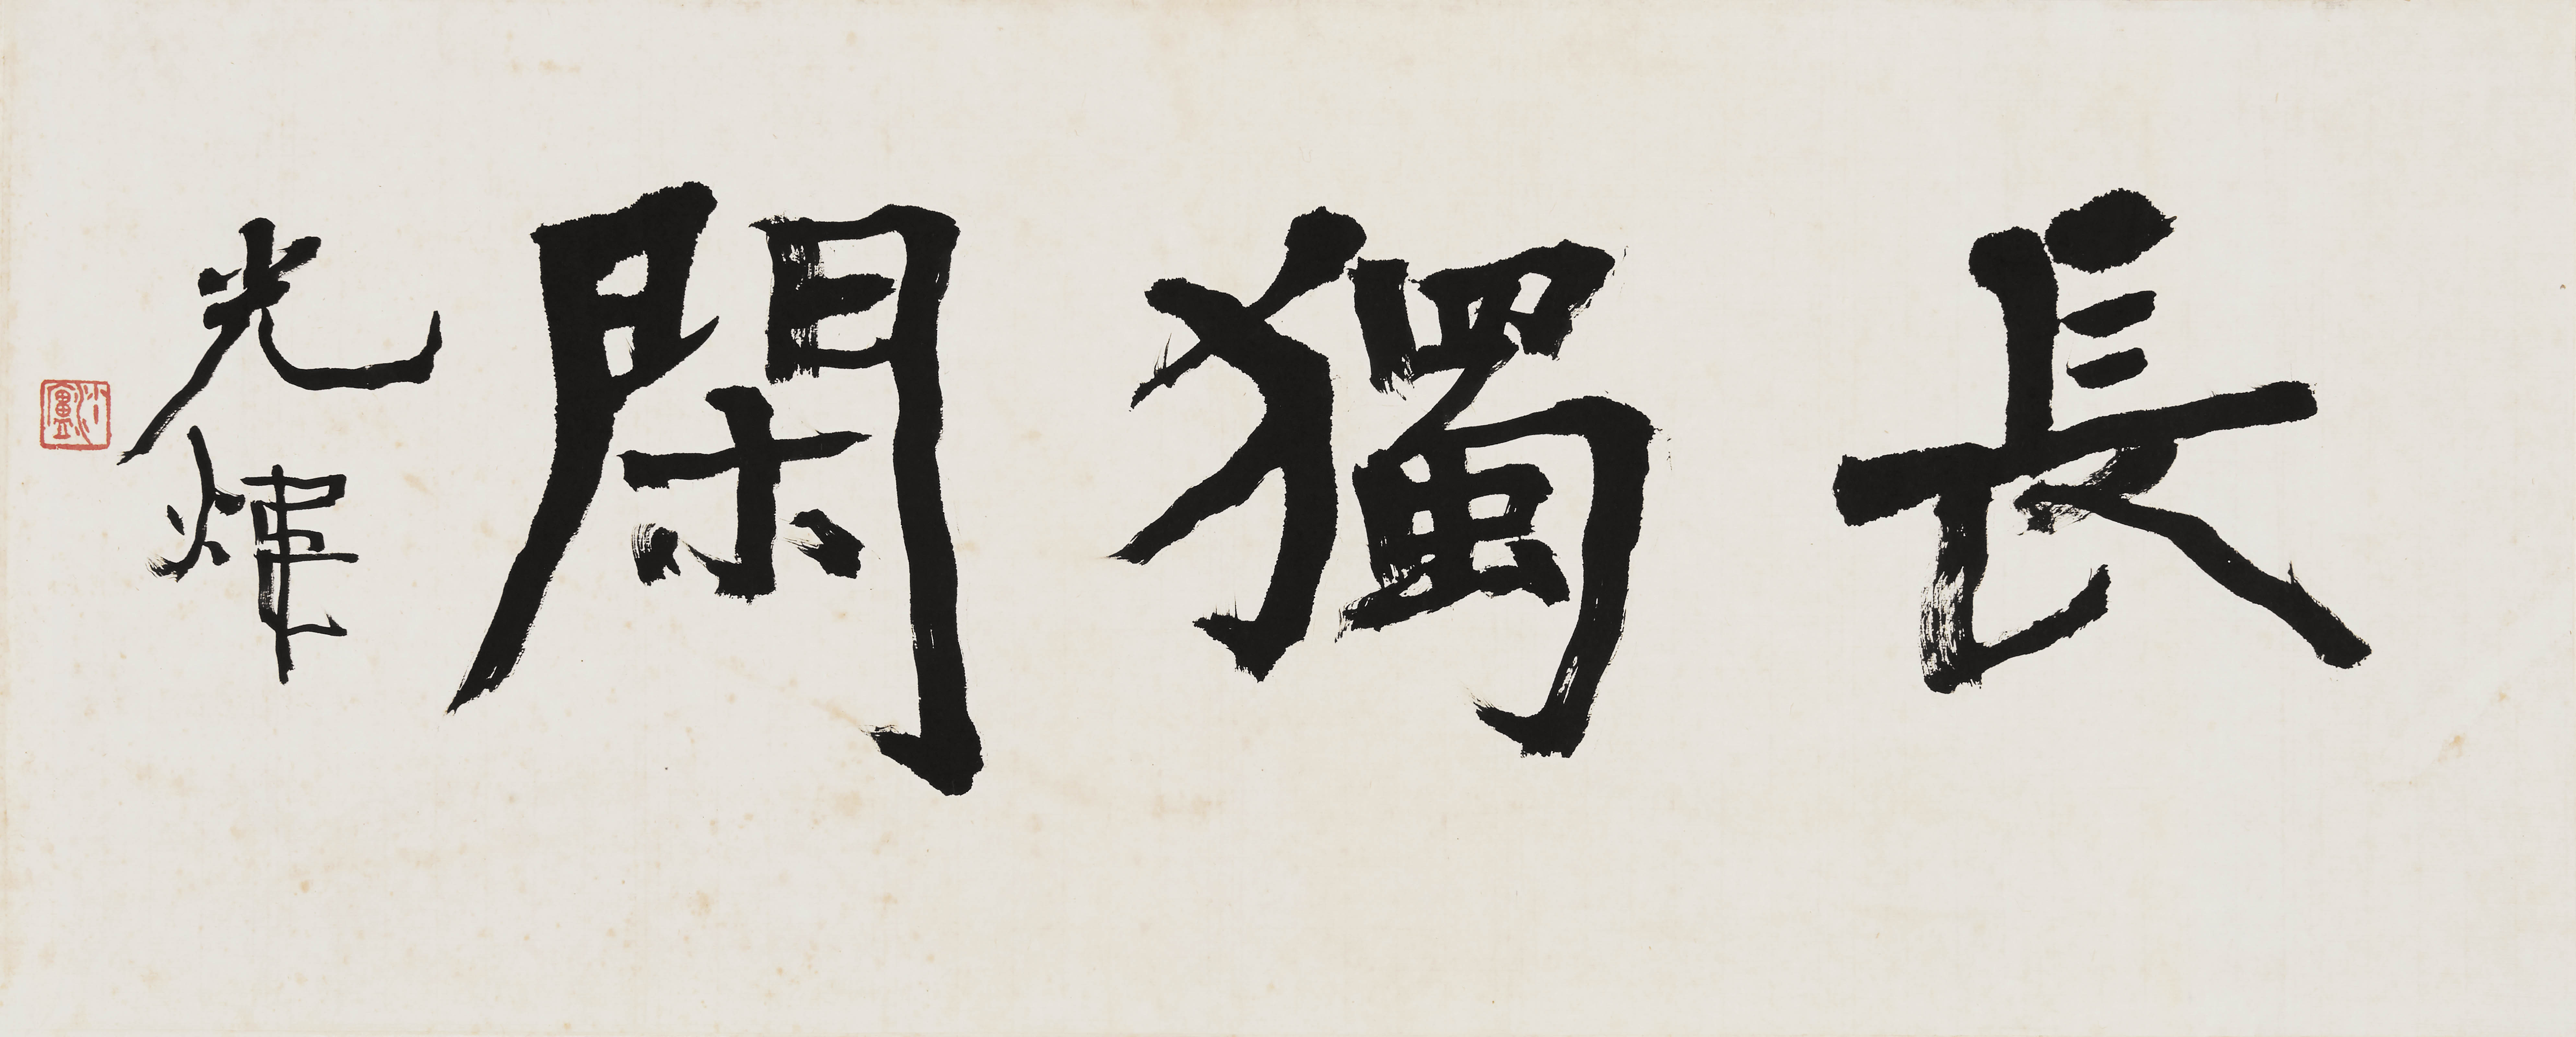 長獨閑
光煒